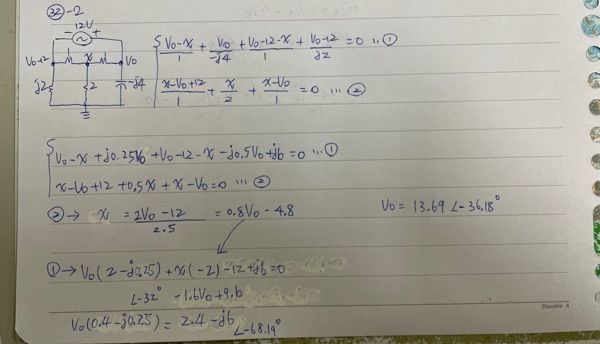 32-2
12V
− +
V₀-12 x V₀
j2 2 -j4
{ (V₀-x)/1 + V₀/-j4 + (V₀-12-x)/1 + (V₀-12)/j2 = 0 … ①
(x-V₀+12)/1 + x/2 + (x-V₀)/1 = 0 … ②
{ V₀-x + j0.25V₀ + V₀-12-x - j0.5V₀ + j6 = 0 … ①
x-V₀+12+0.5x+x-V₀=0 … ②
② → x = (2V₀-12)/2.5 = 0.8V₀-4.8
V₀ = 13.69 ∠-36.18°
① → V₀(2-j0.25) + x(-2) -12+j6=0
∠-32° -1.6V₀+9.6
V₀(0.4-j0.25) = 2.4-j6
∠-68.19°
Double A